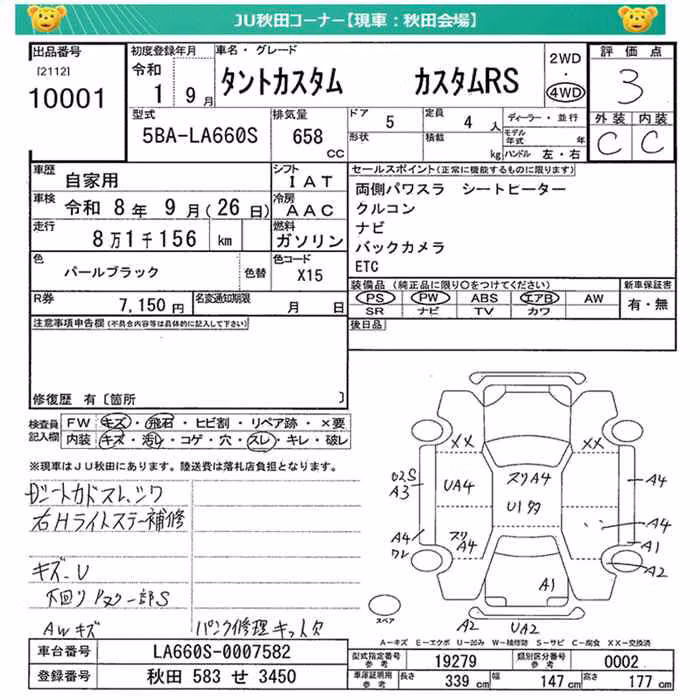 JU秋田コーナー【現車：秋田会場】
出品番号
[2112]
10001
初度登録年月
令和
1 9月
車名・グレード
タントカスタム カスタムRS
2WD
・
4WD
評価点
3
型式
5BA-LA660S
排気量
658
CC
ドア
5
定員
4人
形状
積載
kg
ディーラー・並行
モデル年式 年
ハンドル 左・右
外装 内装
C C
車歴
自家用
シフト
IAT
車検
令和 8年 9月(26日)
冷房
AAC
走行
8万1千156 km
燃料
ガソリン
色
パールブラック
色替
色コード
X15
R券
7,150円
名変通知期限
月 日
セールスポイント(正常に機能するものに限ります)
両側パワスラ シートヒーター
クルコン
ナビ
バックカメラ
ETC
装備品(純正品に限り○をつけてください)
PS PW ABS エアB AW
SR ナビ TV カワ
新車保証書
有・無
後日品
注意事項申告欄(不具合内容等は具体的に記入して下さい)
修復歴 有[箇所 ]
検査員記入欄
FW キズ・飛石・ヒビ割・リペア跡・×要
内装 キズ・汚レ・コゲ・穴・スレ・キレ・破レ
※現車はJU秋田にあります。陸送費は落札店負担となります。
右Hライトステー補修
キズ.U
下回りパスター部S
AWキズ
パンク修理キット欠
XX XX
A3
UA4
スリA4
A4
A4
A4
スリA4
A1
A2
A1
A2
UA2
スペア
A-キズ E-エクボ U-凹み W-補修跡 S-サビ C-腐食 XX-交換済
車台番号
LA660S-0007582
登録番号
秋田 583 せ 3450
型式指定番号
参考
19279
類別区分番号
参考
0002
車庫証明用
参考
長さ
339 cm
幅
147 cm
高さ
177 cm